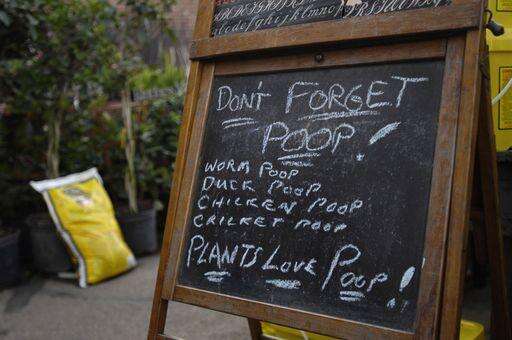 abcdefghijklmno
DON'T FORGET
POOP!
WORM POOP
DUCK POOP
CHICKEN POOP
CRICKET POOP
PLANTS LOVE POOP!